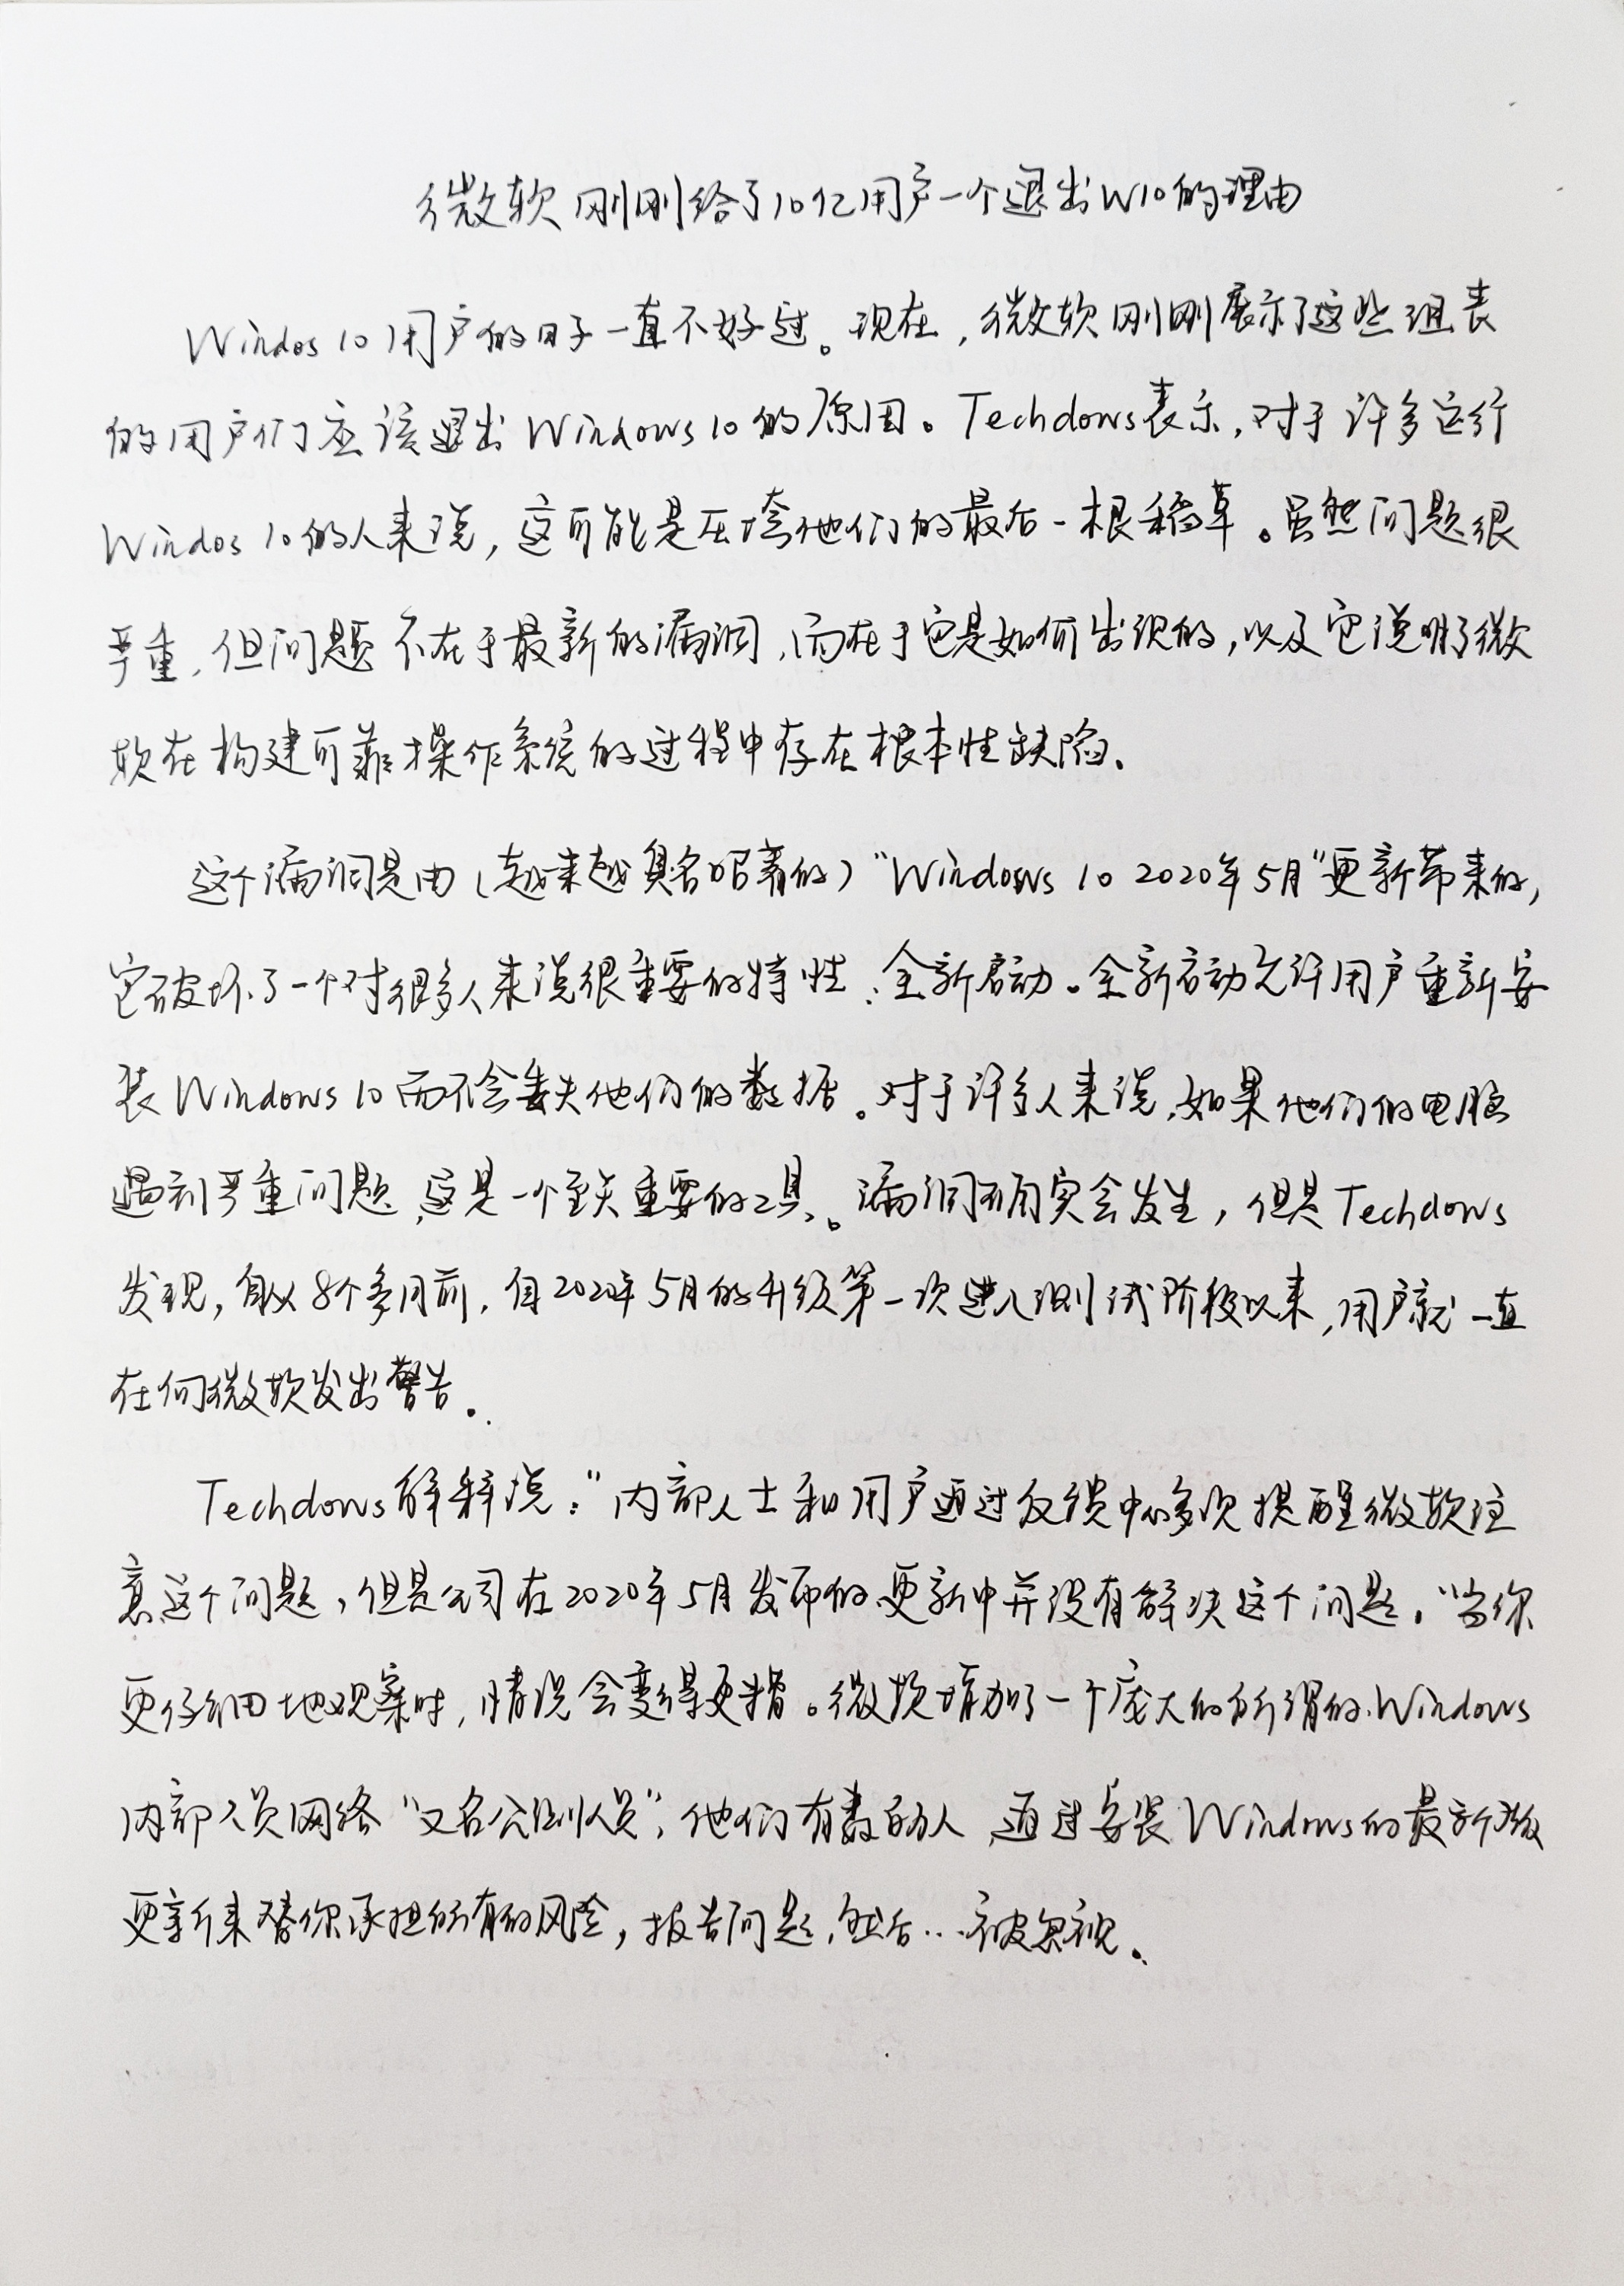 微软刚刚给了10亿用户一个退出W10的理由
Windos 10用户的日子一直不好过。现在,微软刚刚展示了这些沮丧
的用户们应该退出Windows 10的原因。Techdows表示,对于许多运行
Windos 10的人来说,这可能是压垮他们的最后一根稻草。虽然问题很
严重,但问题不在于最新的漏洞,而在于它是如何出现的,以及它说明了微
软在构建可靠操作系统的过程中存在根本性缺陷.
这个漏洞是由(越来越臭名昭著的)"Windows 10 2020年5月"更新带来的,
它破坏了一个对很多人来说很重要的特性:全新启动。全新启动允许用户重新安
装Windows 10而不会丢失他们的数据。对于许多人来说,如果他们的电脑
遇到严重问题,这是一个至关重要的工具。漏洞确实会发生,但是Techdows
发现,自从8个多月前,自2020年5月的升级第一次进入测试阶段以来,用户就一直
在向微软发出警告.
Techdows解释说:"内部人士和用户通过反馈中心多次提醒微软注
意这个问题,但是公司在2020年5月发布的更新中并没有解决这个问题。"当你
更仔细地观察时,情况会变得更糟。微软增加了一个庞大的所谓的Windows
内部人员网络"又名公测人员",他们有数百万人,通过安装Windows的最新版
更新来替你承担所有的风险,报告问题,然后...被忽视.